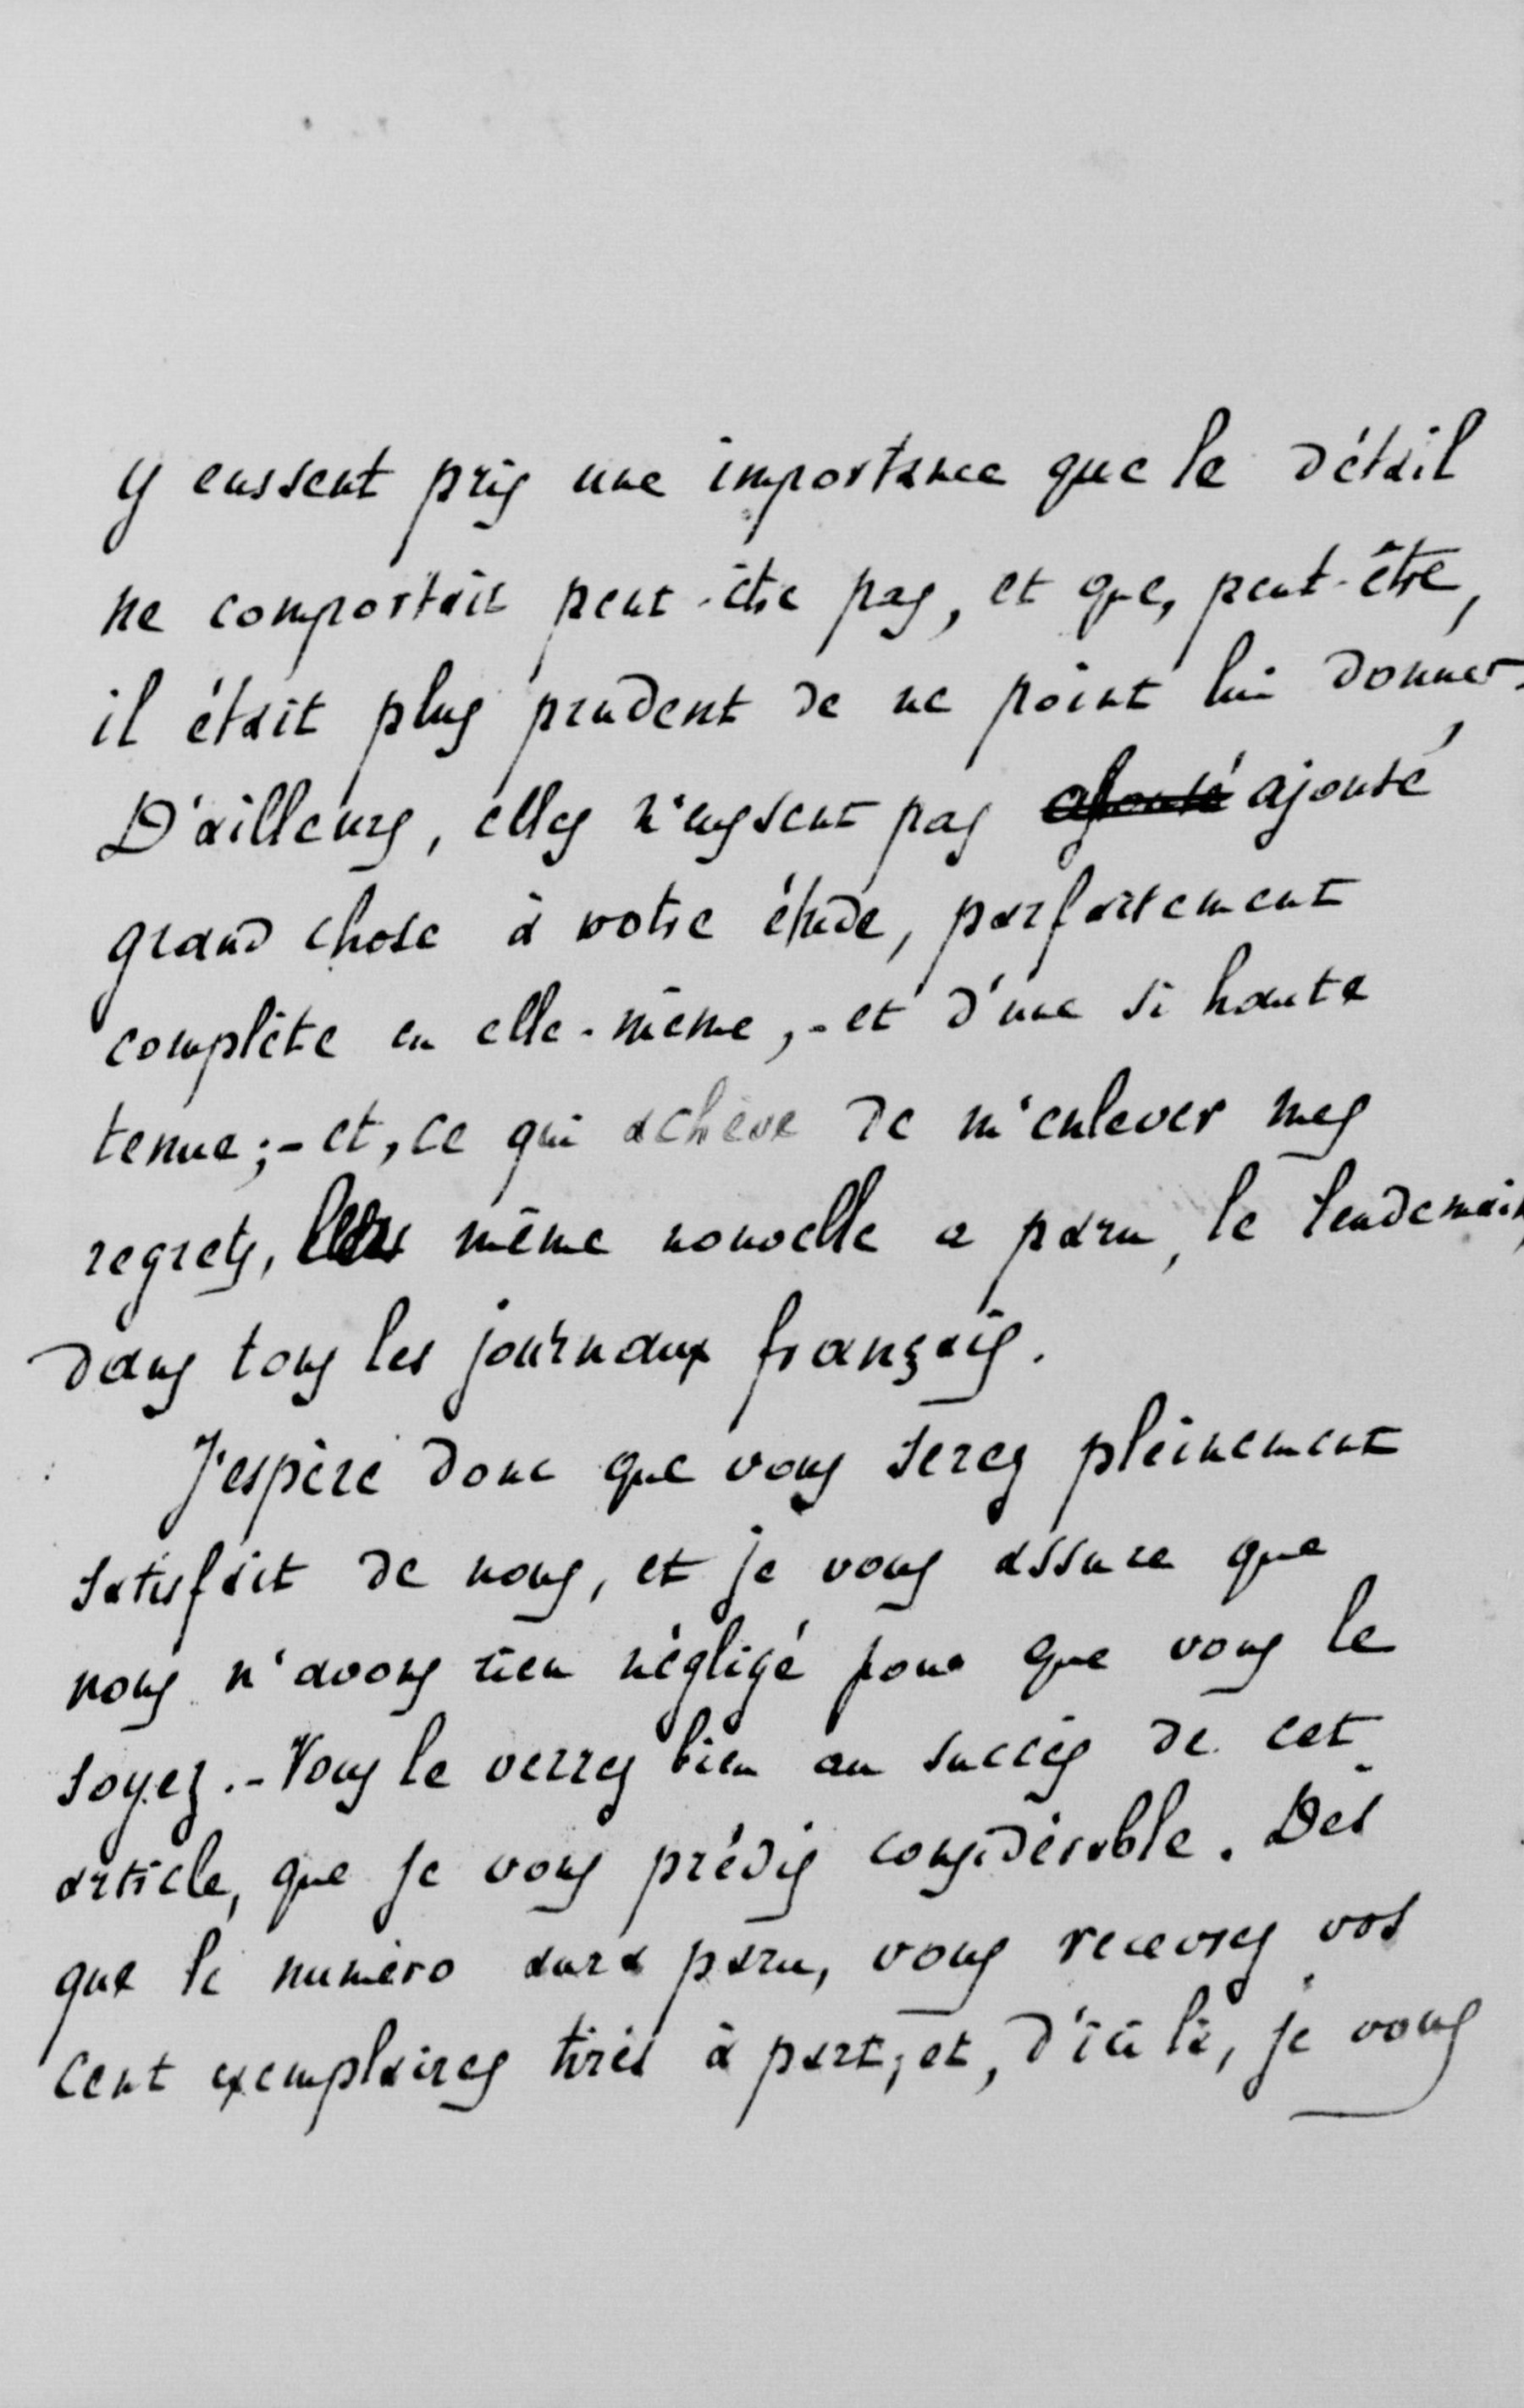 y eussent pris une importance que le détail
ne comportait peut-être pas, et que, peut-être,
il était plus prudent de ne point lui donner.
D'ailleurs, elles n'eussent pas ajouté ajouté
grand chose à votre étude, parfaitement
complète en elle-même, - et d'une si haute
tenue ; - et, ce qui achève de m'enlever mes
regrets, même nouvelle a paru, le lendemain,
dans tous les journaux français.
J'espère donc que vous serez pleinement
satisfait de nous, et je vous assure que
nous n'avons rien négligé pour que vous le
soyez. - Vous le verrez bien au succès de cet
article, que je vous prédis considérable. Dès
que le numéro aura paru, vous recevrez vos
cent exemplaires tirés à part, et, d'ici là, je vous